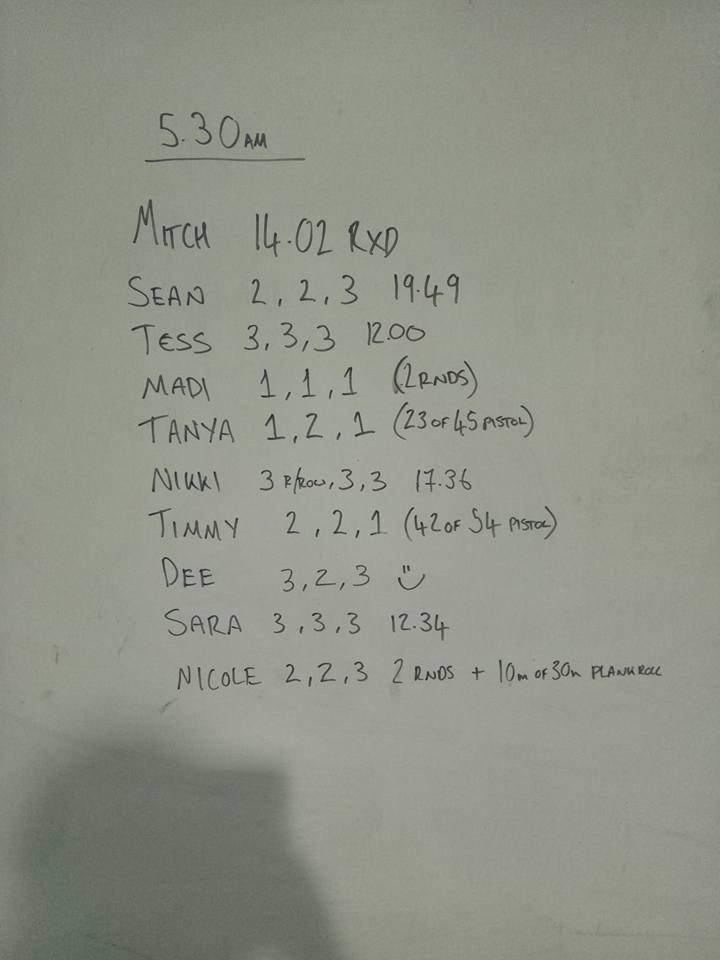 5.30AM
MITCH 14.02 RXD
SEAN 2, 2, 3 19.49
TESS 3, 3, 3 12.00
MADI 1, 1, 1 (2 RNDS)
TANYA 1, 2, 1 (23 OF 45 PISTOL)
NIKKI 3 R/ROW, 3, 3 17.36
TIMMY 2, 2, 1 (42 OF 54 PISTOL)
DEE 3, 2, 3
SARA 3, 3, 3 12.34
NICOLE 2, 2, 3 2 RNDS + 10m OF 30m PLANK ROLL